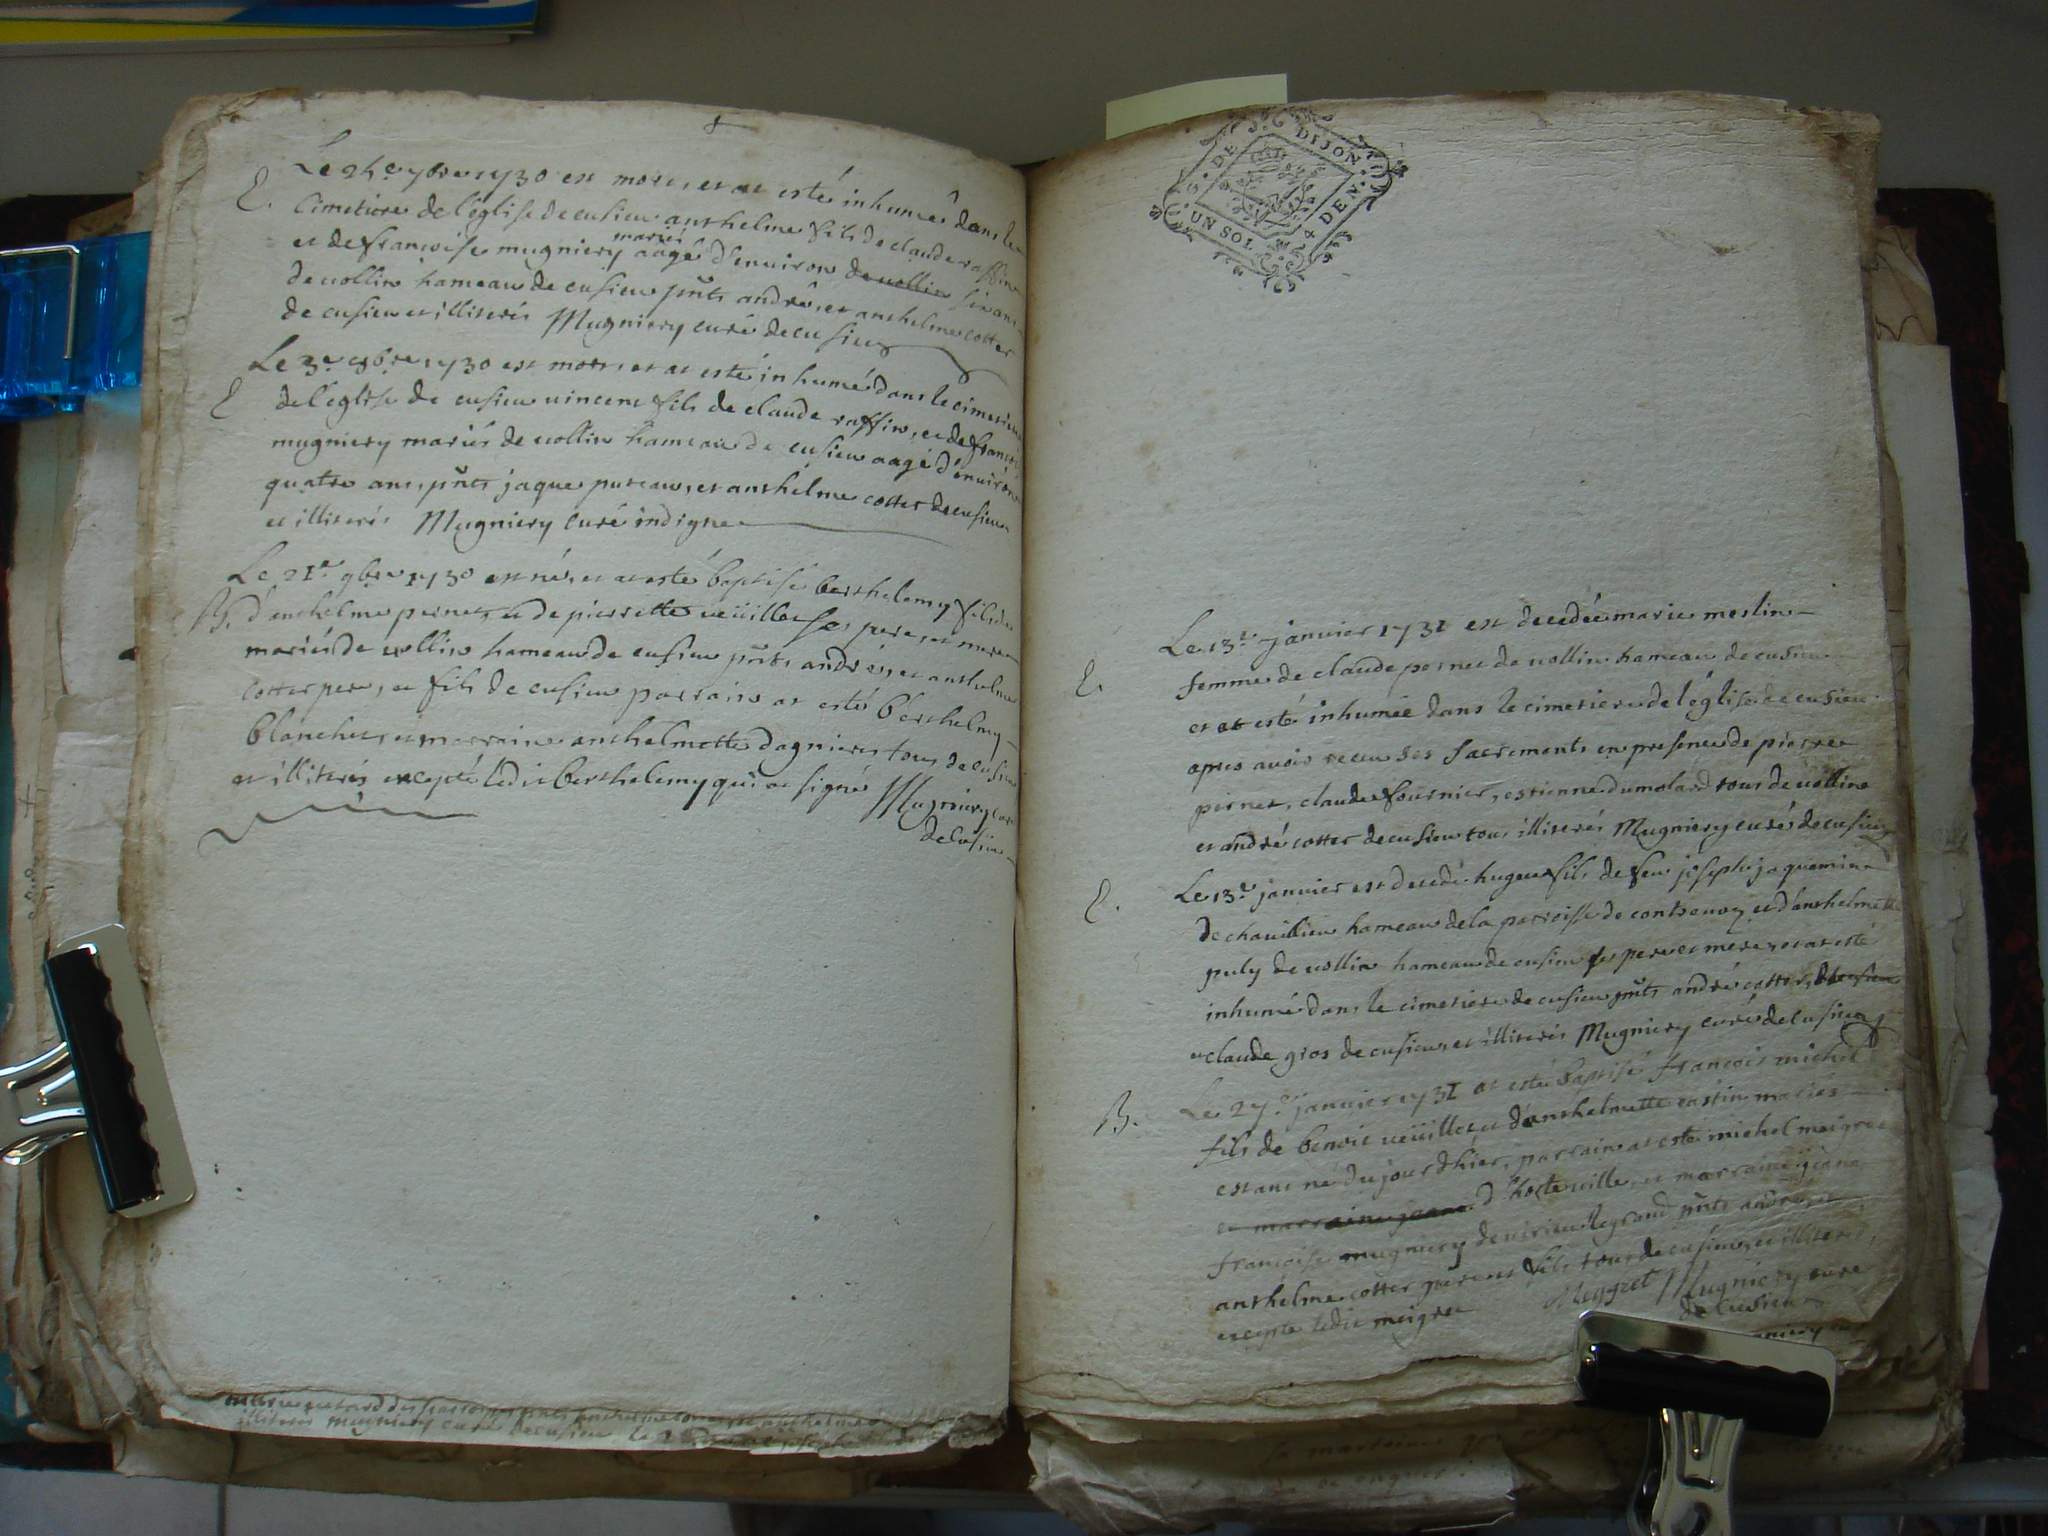 Le 24e 7bre 1730 est mort, et at esté inhumé dans le
E.
Cimetiere de l'église de cusieu anthelme fils de claude raffin
mariés
et de françoise mugniery aagé d'environ de vollin six ans
de vollin hameau de cusieu pnts andré, et anthelme cotter
de cusieu et illiterés Mugniery curé de cusieu
Le 3e 9bre 1730 est mort, et at esté inhumé dans le cimetiere
E
de l'église de cusieu vincent fils de claude raffin, et de françoise
mugniery mariés de vollin hameau de cusieu aagé d'environ
quatre ans, pnts jaque puteau, et anthelme cotter de cusieu
et illiterés Mugniery curé indigne
Le 21e 9bre 1730 est né, et at esté baptisé berthelemy fils
B.
d'anthelme pernet, et de pierrette veüillet ses pere, et mere
mariés de vollin hameau de cusieu pnts andré, et anthelme
cotter pere, et fils de cusieu parrain at esté berthelemy
blanchet, et marraine anthelmette dagnieres tous de cusieu
et illiterés excepté ledit berthelemy qui at signé Mugniery curé
de Cusieu
DE DIJON
UN SOL 4 DEN.
Le 13e janvier 1731 est decedée marie meslin
E.
femme de claude pernet de vollin hameau de cusieu
et at esté inhumée dans le cimetiere de l'église de cusieu
apres avoir receu ses sacrements en presence de pierre
pernet, claude fournier, estienne dumolard tous de vollin
et andré cotter de cusieu tous illiterés Mugniery curé de cusieu
E.
Le 13e janvier est decedé hugue fils de feu joseph jaquemin
de chavillieu hameau de la parroisse de contrevoz et d'anthelmette
puly de vollin hameau de cusieu ses pere et mere, et at esté
inhumé dans le cimetiere de cusieu pnts andré cotter, de cusieu
et claude gros de cusieu, et illiterés Mugniery curé de cusieu
B.
Le 27e janvier 1731 at esté baptisé françois michel
fils de benoit veüillet, et d'anthelmette castin mariés
estant né du jour d'hier, parrain at esté michel meigret
et marraine jeanne d'hosteville, et marraine jeanne
françoise mugniery de virieu le grand pnts andré, et
anthelme cotter pere et fils tous de cusieu, et illiterés,
excepté ledit meigret Meygret Mugniery curé
de Cusieu